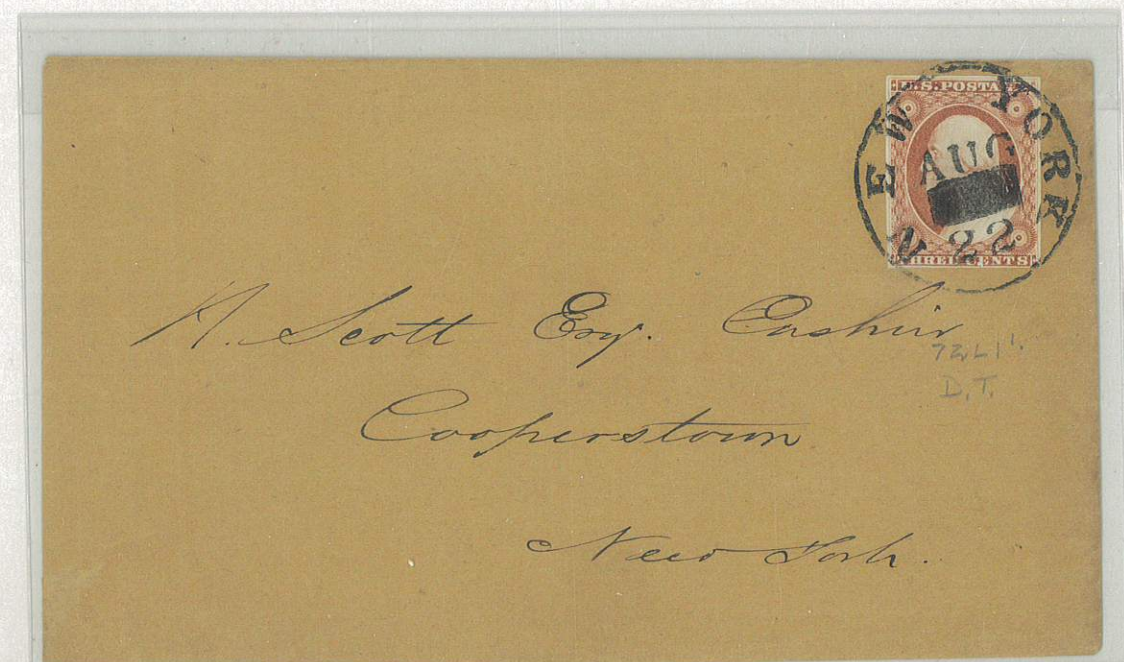 U.S. POSTA
NEW YORK
AUG
22
THREE CENTS
A. Scott Esq. Cashier
72L1'.
D.T.
Cooperstown
New York.